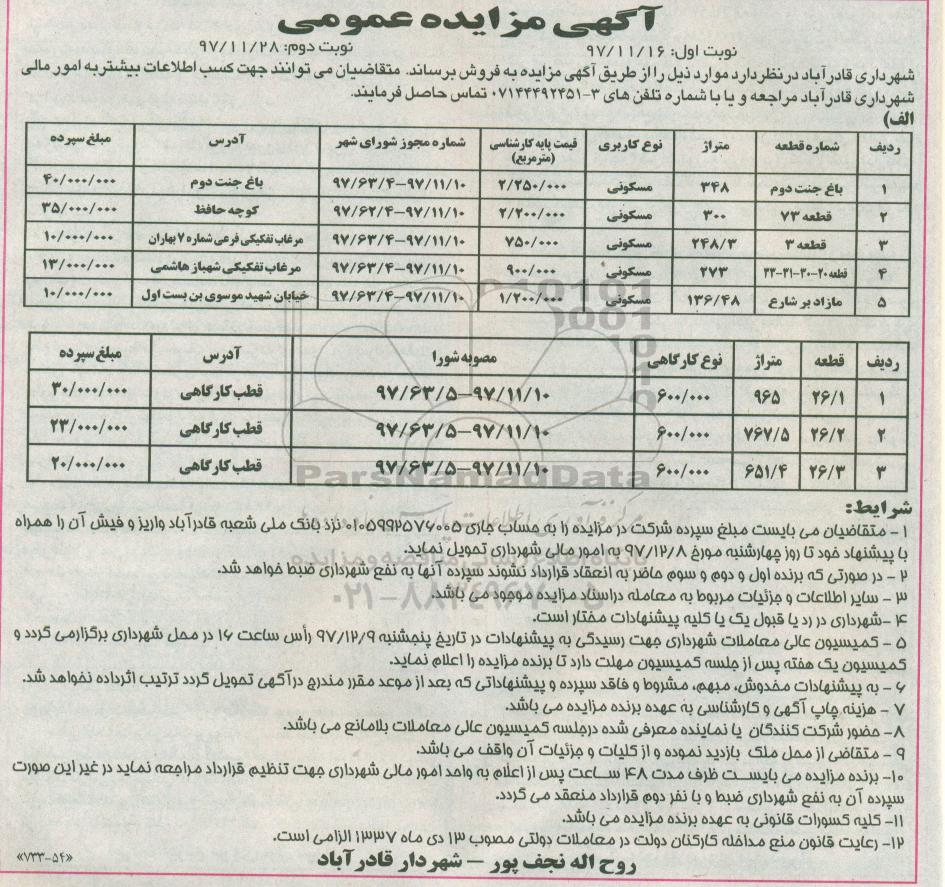 آگهی مزایده عمومی
نوبت اول: ۹۷/۱۱/۱۶ نوبت دوم: ۹۷/۱۱/۲۸
شهرداری قادرآباد در نظر دارد موارد ذیل را از طریق آگهی مزایده به فروش برساند. متقاضیان می توانند جهت کسب اطلاعات بیشتر به امور مالی
شهرداری قادرآباد مراجعه و یا با شماره تلفن های ۳-۰۷۱۴۴۴۹۲۴۵۱ تماس حاصل فرمایند.
الف)
ردیف شماره قطعه متراژ نوع کاربری قیمت پایه کارشناسی (مترمربع) شماره مجوز شورای شهر آدرس مبلغ سپرده
۱ باغ جنت دوم ۳۴۸ مسکونی ۲/۲۵۰/۰۰۰ ۹۷/۶۳/۴–۹۷/۱۱/۱۰ باغ جنت دوم ۴۰/۰۰۰/۰۰۰
۲ قطعه ۷۳ ۳۰۰ مسکونی ۲/۲۰۰/۰۰۰ ۹۷/۶۲/۴–۹۷/۱۱/۱۰ کوچه حافظ ۳۵/۰۰۰/۰۰۰
۳ قطعه ۳ ۲۴۸/۳ مسکونی ۷۵۰/۰۰۰ ۹۷/۶۳/۴–۹۷/۱۱/۱۰ مرغاب تفکیکی فرعی شماره ۷ بهاران ۱۰/۰۰۰/۰۰۰
۴ قطعه ۲۰-۳۰-۳۱-۳۳ ۲۷۳ مسکونی ۹۰۰/۰۰۰ ۹۷/۶۳/۴–۹۷/۱۱/۱۰ مرغاب تفکیکی شهباز هاشمی ۱۳/۰۰۰/۰۰۰
۵ مازاد بر شارع ۱۳۶/۴۸ مسکونی ۱/۲۰۰/۰۰۰ ۹۷/۶۳/۴–۹۷/۱۱/۱۰ خیابان شهید موسوی بن بست اول ۱۰/۰۰۰/۰۰۰
ردیف قطعه متراژ نوع کارگاهی مصوبه شورا آدرس مبلغ سپرده
۱ ۲۶/۱ ۹۶۵ ۶۰۰/۰۰۰ ۹۷/۶۳/۵–۹۷/۱۱/۱۰ قطب کارگاهی ۳۰/۰۰۰/۰۰۰
۲ ۲۶/۲ ۷۶۷/۵ ۶۰۰/۰۰۰ ۹۷/۶۳/۵–۹۷/۱۱/۱۰ قطب کارگاهی ۲۳/۰۰۰/۰۰۰
۳ ۲۶/۳ ۶۵۱/۴ ۶۰۰/۰۰۰ ۹۷/۶۳/۵–۹۷/۱۱/۱۰ قطب کارگاهی ۲۰/۰۰۰/۰۰۰
ParsNamadData
شرایط:
۱ – متقاضیان می بایست مبلغ سپرده شرکت در مزایده را به حساب جاری ۰۱۰۵۹۹۲۵۷۶۰۰۵ نزد بانک ملی شعبه قادرآباد واریز و فیش آن را همراه
با پیشنهاد خود تا روز چهارشنبه مورخ ۹۷/۱۲/۸ به امور مالی شهرداری تحویل نماید.
۲ – در صورتی که برنده اول و دوم و سوم حاضر به انعقاد قرارداد نشوند سپرده آنها به نفع شهرداری ضبط خواهد شد.
۳ – سایر اطلاعات و جزئیات مربوط به معامله در اسناد مزایده موجود می باشد.
۴ – شهرداری در رد یا قبول یک یا کلیه پیشنهادات مختار است.
۵ – کمیسیون عالی معاملات شهرداری جهت رسیدگی به پیشنهادات در تاریخ پنجشنبه ۹۷/۱۲/۹ رأس ساعت ۱۶ در محل شهرداری برگزار می گردد و
کمیسیون یک هفته پس از جلسه کمیسیون مهلت دارد تا برنده مزایده را اعلام نماید.
۶ – به پیشنهادات مخدوش، مبهم، مشروط و فاقد سپرده و پیشنهاداتی که بعد از موعد مقرر مندرج در آگهی تحویل گردد ترتیب اثر داده نخواهد شد.
۷ – هزینه چاپ آگهی و کارشناسی به عهده برنده مزایده می باشد.
۸– حضور شرکت کنندگان یا نماینده معرفی شده در جلسه کمیسیون عالی معاملات بلامانع می باشد.
۹ – متقاضی از محل ملک بازدید نموده و از کلیات و جزئیات آن واقف می باشد.
۱۰– برنده مزایده می بایست ظرف مدت ۴۸ ساعت پس از اعلام به واحد امور مالی شهرداری جهت تنظیم قرارداد مراجعه نماید در غیر این صورت
سپرده آن به نفع شهرداری ضبط و با نفر دوم قرارداد منعقد می گردد.
۱۱– کلیه کسورات قانونی به عهده برنده مزایده می باشد.
۱۲– رعایت قانون منع مداخله کارکنان دولت در معاملات دولتی مصوب ۱۳ دی ماه ۱۳۳۷ الزامی است.
روح اله نجف پور – شهردار قادرآباد
«۷۳۳-۵۴»